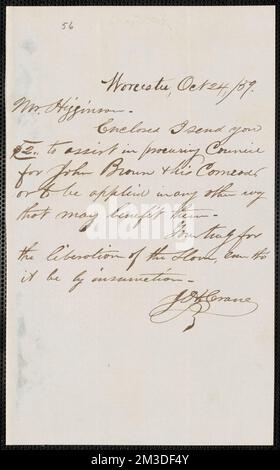 56
Worcester, Oct 24, /59.
Mr. Higginson.
Enclosed I send you
$2. to assist in procuring Council
for John Brown & his Comrades
or to be applied in any other way
that may benefit them.
Yours truly for
the liberation of the Slave, even tho'
it be by insurrection.
J A H Crane
alamy
alamy
Image ID: 2M3DF4Y
www.alamy.com